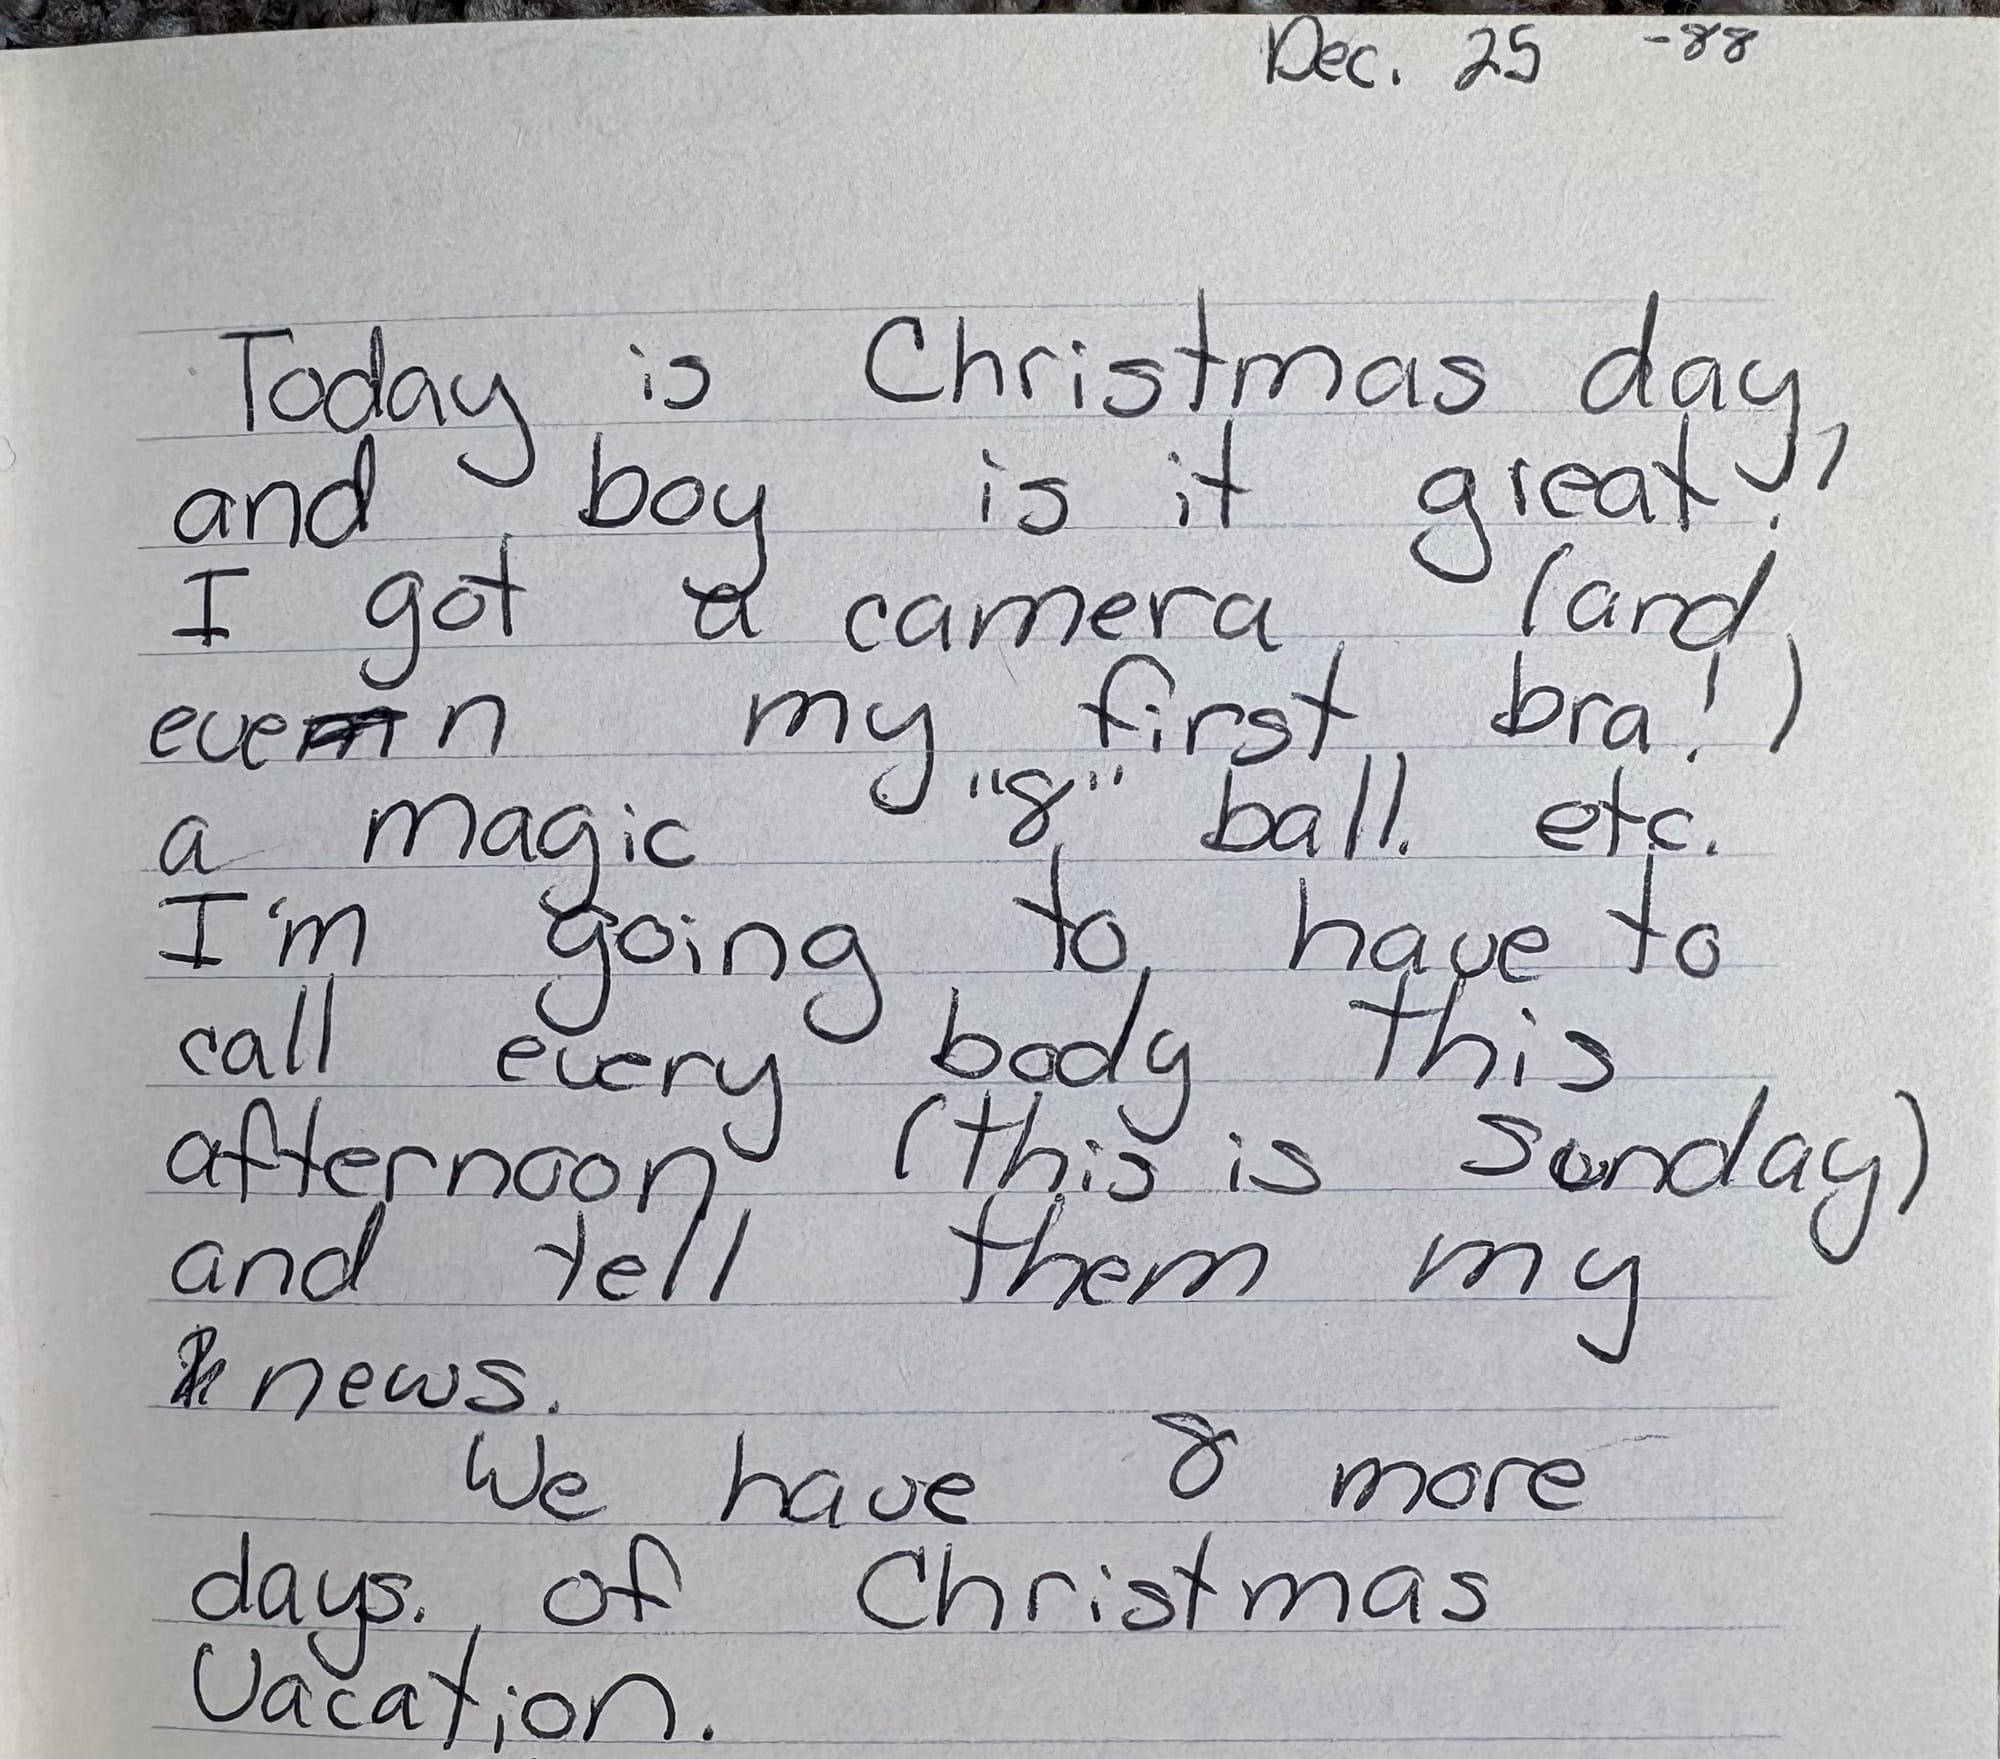 Dec. 25 -88
Today is Christmas day,
and boy is it great!
I got a camera (and
even my first bra!)
a magic "8" ball. etc.
I'm going to have to
call every body this
afternoon (this is Sunday)
and tell them my
news.
We have 8 more
days. of Christmas
Vacation.